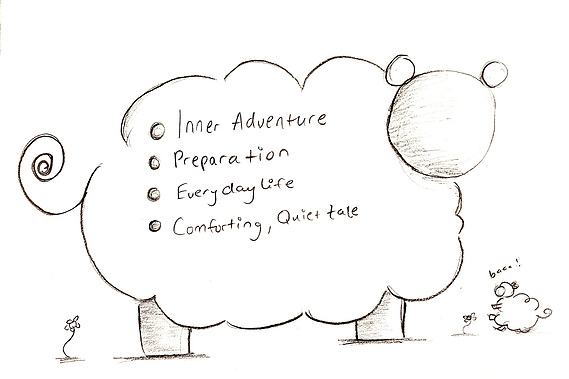 Inner Adventure
Preparation
Everyday life
Comforting, Quiet tale
baaa!!